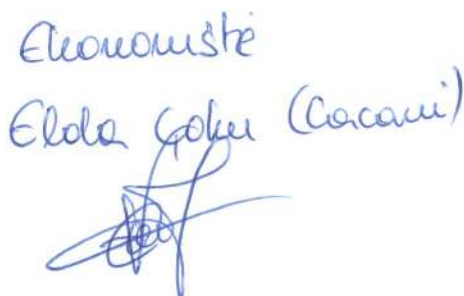 Ekonomiste
Elda Çoku (Cacani)